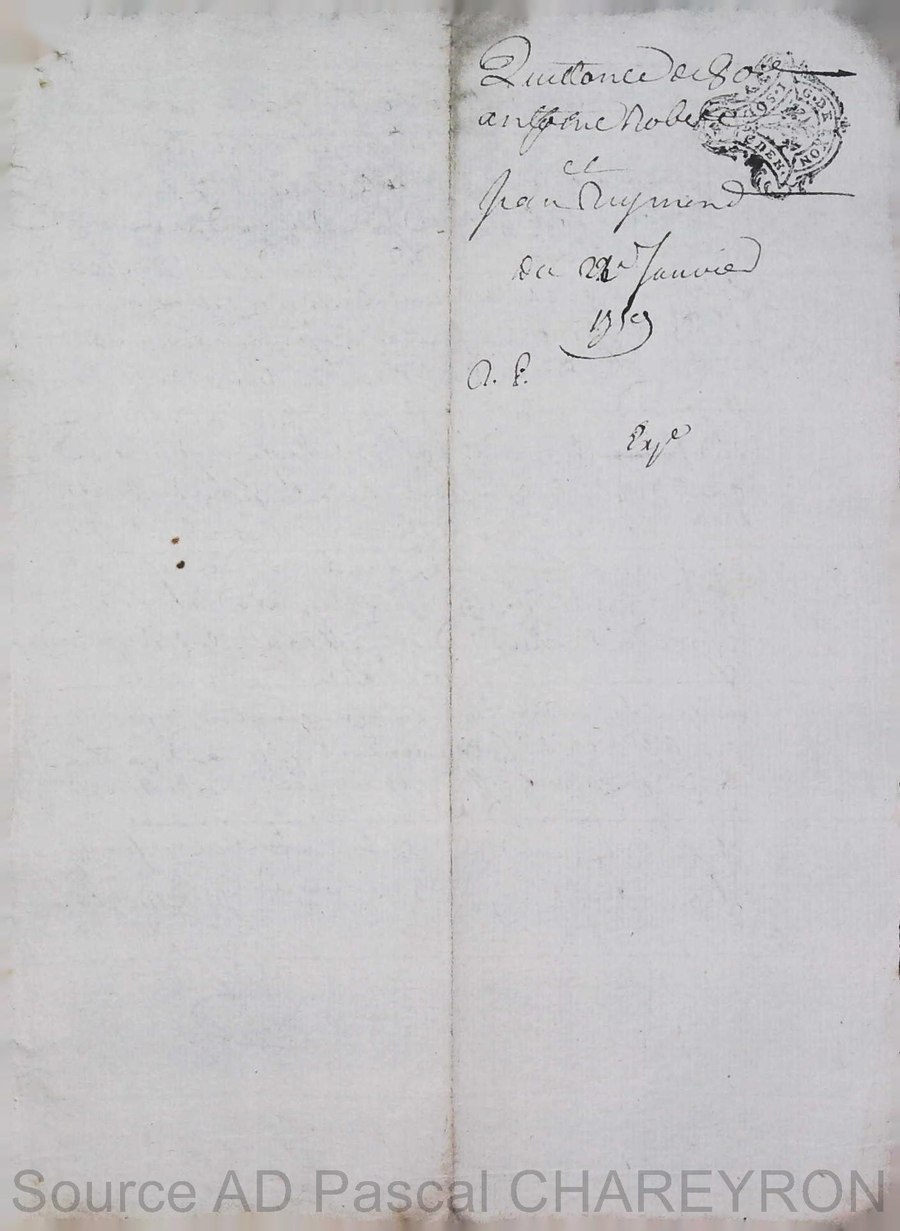 Quittance de 80#
antoine Robert
et
Jean Reymond
du 22e Janvier
1759
Exp.e
Source AD Pascal CHAREYRON